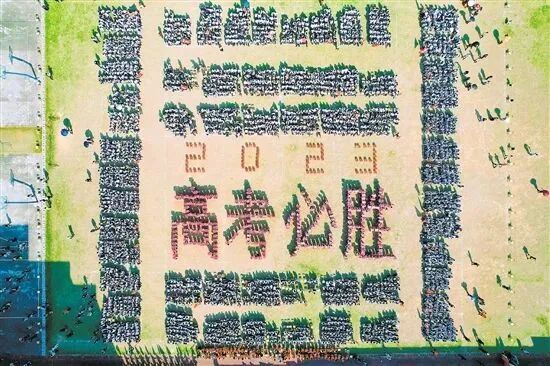 2023
高考必胜